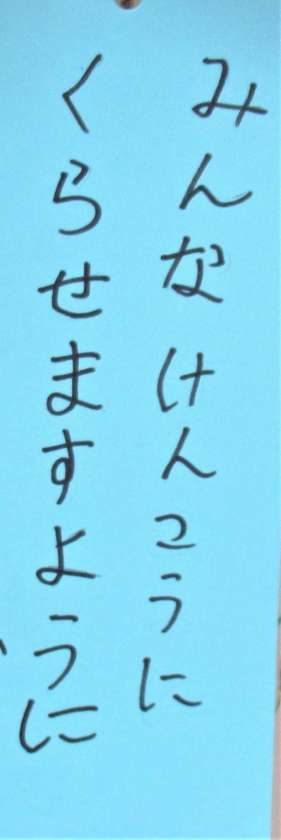 みんなけんこうに
くらせますように